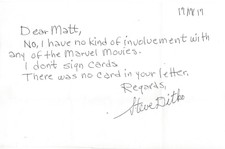 17/18/17
Dear Matt,
No, I have no kind of involvement with
any of the Marvel Movies.
I don't sign cards
There was no card in your letter.
Regards,
Steve Ditko